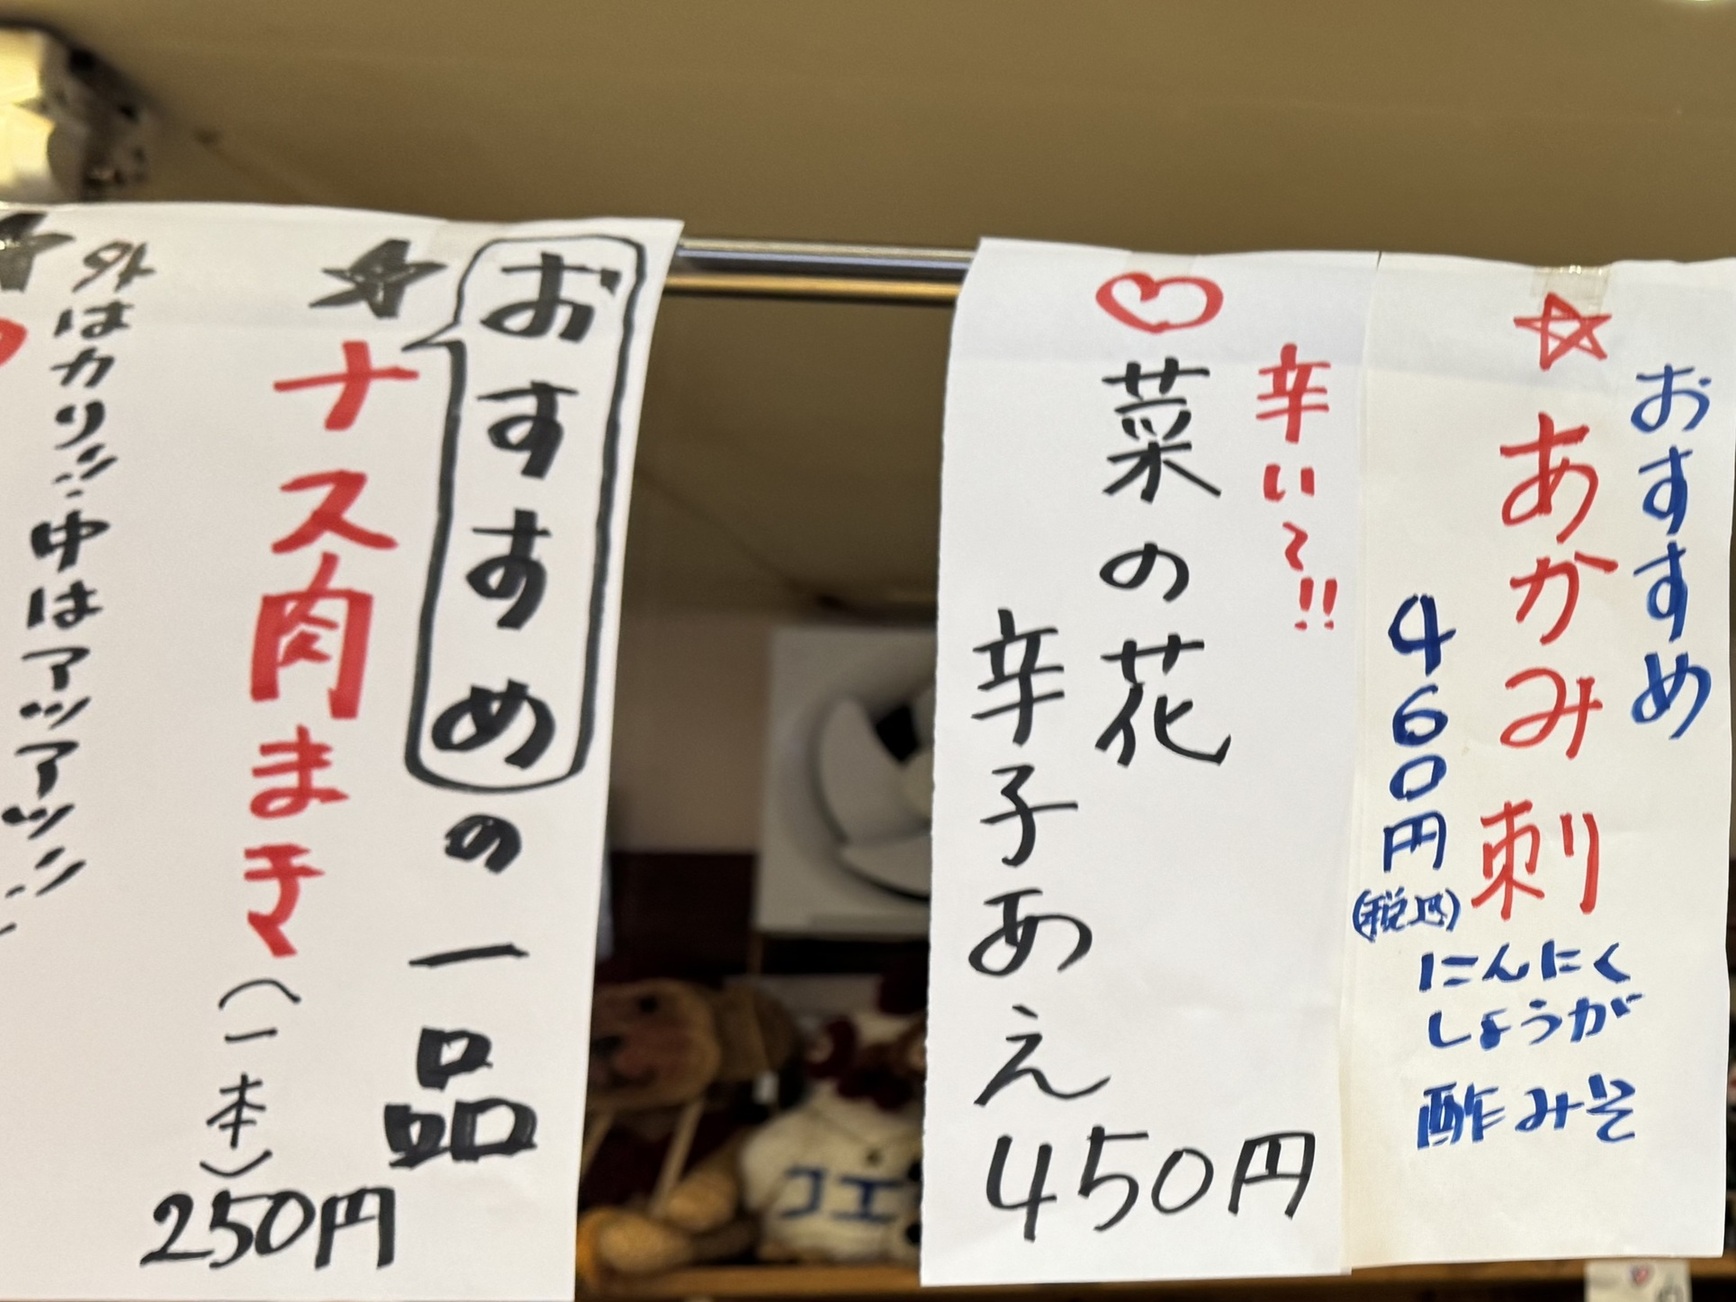 おすすめ
☆あかみ刺
460円
(税込)
にんにく
しょうが
酢みそ
辛い〜!!
♡菜の花
辛子あえ
450円
おすすめの一品
★ナス肉まき(一本)
250円
外はカリッ!!中はアッツアッツ!!
コエ